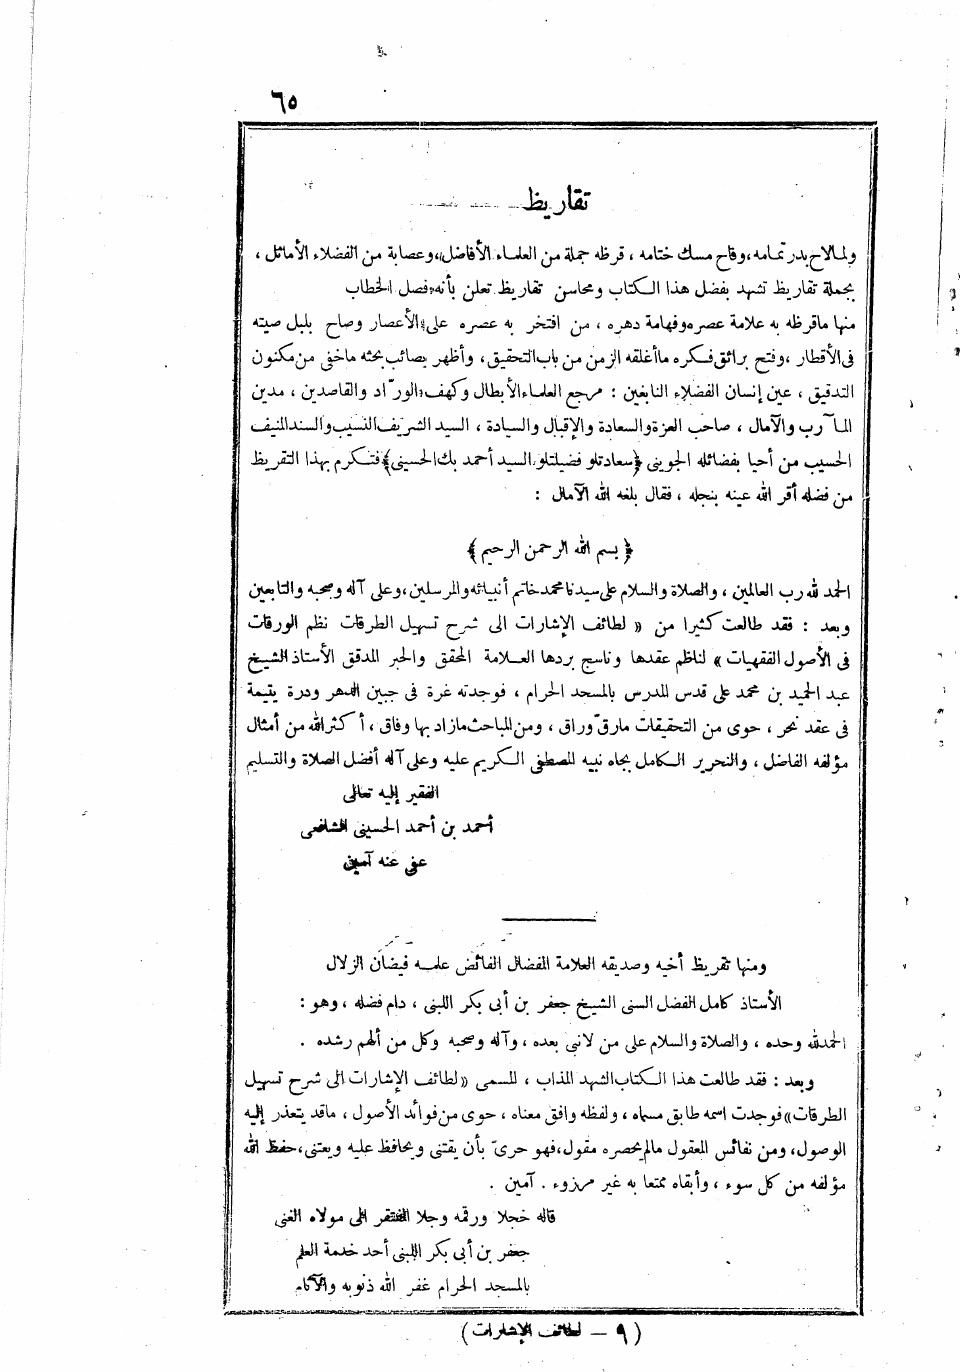 ٦٥
تقاريظ
ولما لاح بدر تمامه، وفاح مسك ختامه ، قرظه جملة من العلماء الأفاضل، وعصابة من الفضلاء الأماثل ،
بجملة تقاريظ تشهد بفضل هذا الكتاب ومحاسن تقاريظ تعلن بأنه فصل الخطاب
منها ماقرظه به علامة عصره وفهامة دهره ، من افتخر به عصره على الأعصار وصاح بلبل صيته
فى الأقطار ، وفتح برائق فكره ما أغلقه الزمن من باب التحقيق ، وأظهر بصائب بحثه ماخفى من مكنون
التدقيق ، عين إنسان الفضلاء النابغين : مرجع العلماء الأبطال وكهف الورّاد والقاصدين ، مدين
المآرب والآمال ، صاحب العزة والسعادة والإقبال والسيادة ، السيد الشريف النسيب والسند المنيف
الحسيب من أحيا بفضائله الجوينى ﴿سعادتلو فضيلتلو السيد أحمد بك الحسينى﴾ فتكرم بهذا التقريظ
من فضله أقر الله عينه بنجله ، فقال بلغه الله الآمال :
﴿ بسم الله الرحمن الرحيم ﴾
الحمد لله رب العالمين ، والصلاة والسلام على سيدنا محمد خاتم أنبيائه والمرسلين ، وعلى آله وصحبه والتابعين
وبعد : فقد طالعت كثيرا من « لطائف الإشارات الى شرح تسهيل الطرقات نظم الورقات
فى الأصول الفقهيات » لناظم عقدها وناسج بردها العلامة المحقق والحبر المدقق الأستاذ الشيخ
عبد الحميد بن محمد على قدس المدرس بالمسجد الحرام ، فوجدته غرة فى جبين الدهر ودرة يتيمة
فى عقد نحر ، حوى من التحقيقات مارقّ وراق ، ومن المباحث مازاد بها وفاق ، أكثر الله من أمثال
مؤلفه الفاضل ، والنحرير الكامل بجاه نبيه المصطفى الكريم عليه وعلى آله أفضل الصلاة والتسليم
الفقير إليه تعالى
أحمد بن أحمد الحسينى الشافعى
عفى عنه آمين
ومنها تقريظ أخيه وصديقه العلامة المفضال الفائض علمه فيضان الزلال
الأستاذ كامل الفضل السنى الشيخ جعفر بن أبى بكر اللبنى ، دام فضله ، وهو :
الحمد لله وحده ، والصلاة والسلام على من لا نبى بعده ، وآله وصحبه وكل من ألهم رشده .
وبعد : فقد طالعت هذا الكتاب الشهد المذاب ، المسمى « لطائف الإشارات الى شرح تسهيل
الطرقات » فوجدت اسمه طابق مسماه ، ولفظه وافق معناه ، حوى من فوائد الأصول ، ماقد يتعذر إليه
الوصول ، ومن نفائس المعقول مالم يحصره مقول ، فهو حرىّ بأن يقتنى ويحافظ عليه ويعتنى ، حفظ الله
مؤلفه من كل سوء ، وأبقاه ممتعا به غير مرزوء . آمين .
قاله خجلا ورقمه وجلا المفتقر الى مولاه الغنى
جعفر بن أبى بكر اللبنى أحد خدمة العلم
بالمسجد الحرام غفر الله ذنوبه والآثام
( ٩ – لطائف الإشارات )